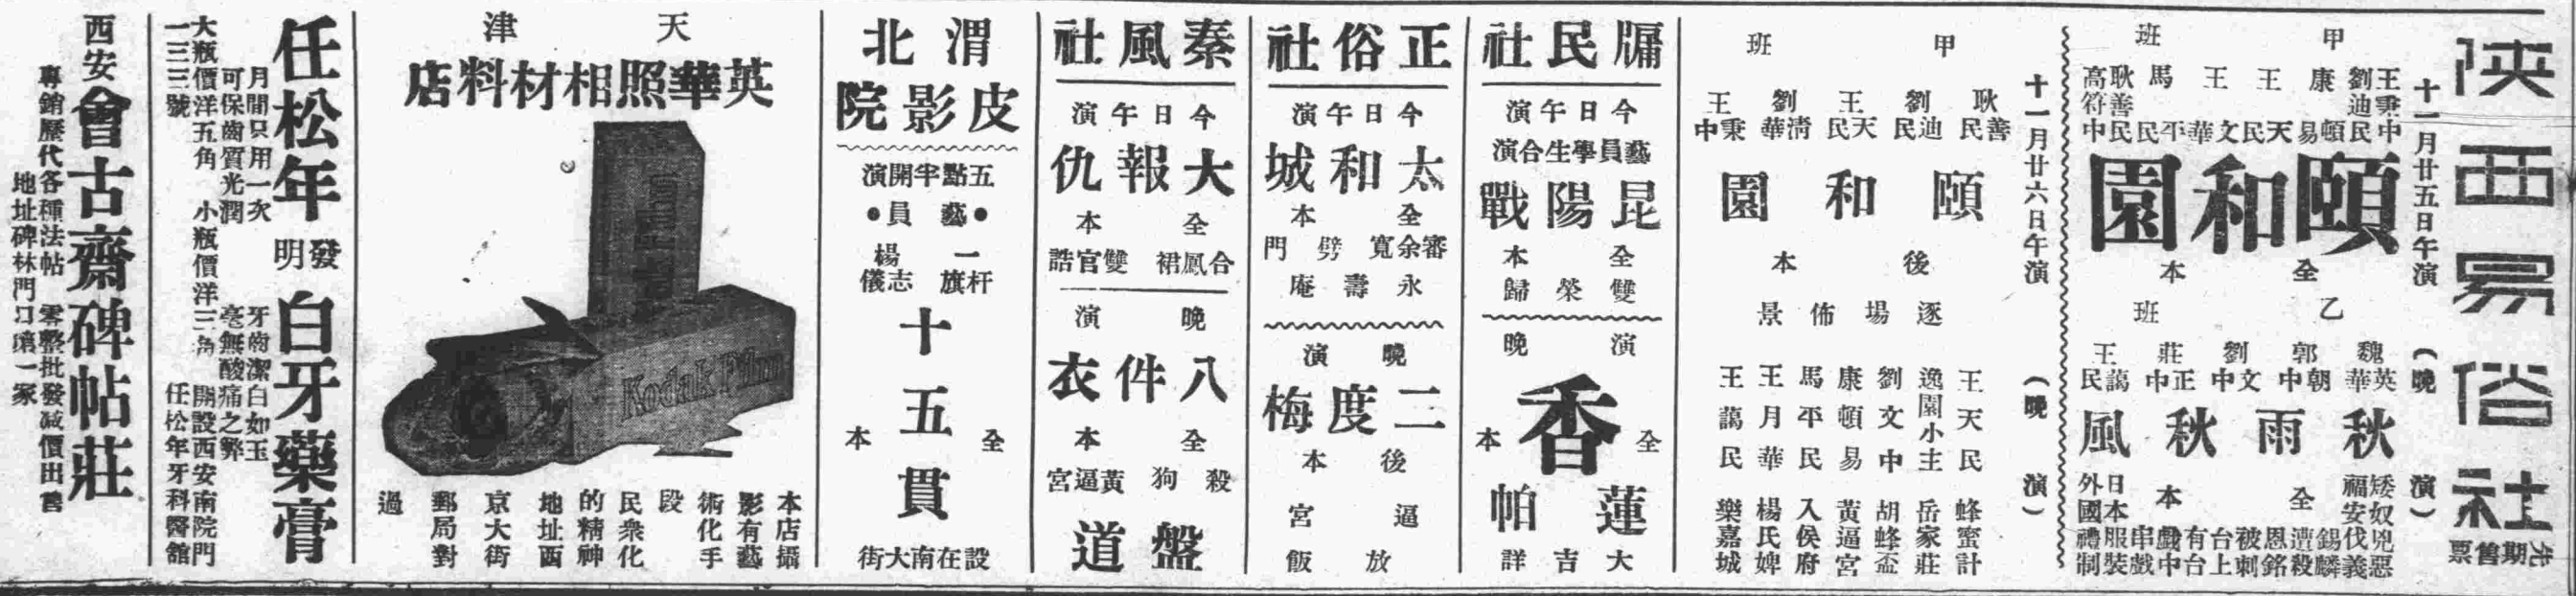 陕西易俗社
先期售票
十一月廿五日午演
甲班
王秉中
劉迪民
康頓易
王天民
王文華
馬平民
耿善民
高符中
頤和園
全本
(晚演)
乙班
魏英華
郭朝中
劉文中
莊正中
王藹民
秋雨秋風
全本
矮奴兇惡
福安伐義
錫麟
遭殺
恩銘
被刺
台上
有台
戲中
串戲
日本服裝
外國禮制
十一月廿六日午演
甲班
耿善民
劉迪民
王天民
劉清華
王秉中
頤和園
後本
逐場佈景
(晚演)
王天民 蜂蜜計
逸園小主 岳家莊
劉文中 胡蜂盃
康頓易 黃逼宮
馬平民 入侯府
王月華 楊氏婢
王藹民 樂嘉城
牖民社
今日午演
藝員學生合演
昆陽戰
全本
雙榮歸
晚演
香蓮帕
全本
大吉詳
正俗社
今日午演
太和城
全本
審余寬
劈門
永壽庵
晚演
二度梅
後本
逼宮
放飯
秦風社
今日午演
大報仇
全本
合鳳裙
雙官誥
晚演
八件衣
全本
殺狗
黃逼宮
盤道
渭北
皮影院
五點半開演
●藝員●
一杆旗
楊志儀
十五貫
全本
設在南大街
天津
英華照相材料店
Kodak Film
本店攝
影有藝
術化手
段
民衆化
的精神
地址西
京大街
郵局對
過
任松年發明白牙藥膏
月間只用一次
可保齒質光潤
牙齒潔白如玉
毫無酸痛之弊
大瓶價洋五角
小瓶價洋三角
開設西安南院門
一三三號
任松年牙科醫舘
西安會古齋碑帖莊
專銷歷代各種法帖
零整批發減價出售
地址碑林門口第一家